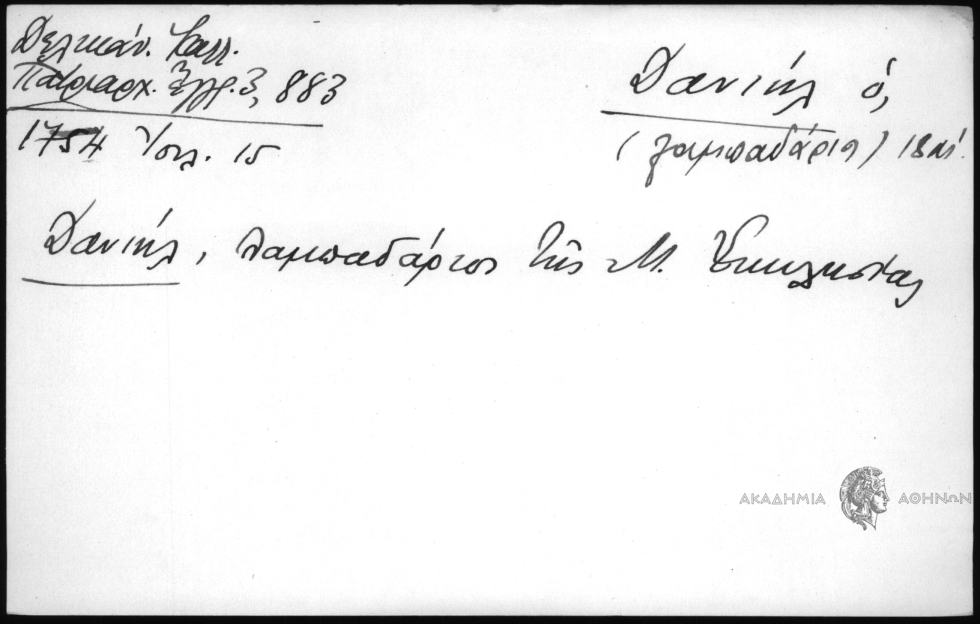 Δελικάν. Καλλ.
Πατριαρχ. Ἔγγρ. 3, 883
1754 Ἰουλ. 15
Δανιήλ ὁ,
(λαμπαδάριος) 18 αἰ.
Δανιήλ, λαμπαδάριος τῆς Μ. Ἐκκλησίας
ΑΚΑΔΗΜΙΑ ΑΘΗΝΩΝ